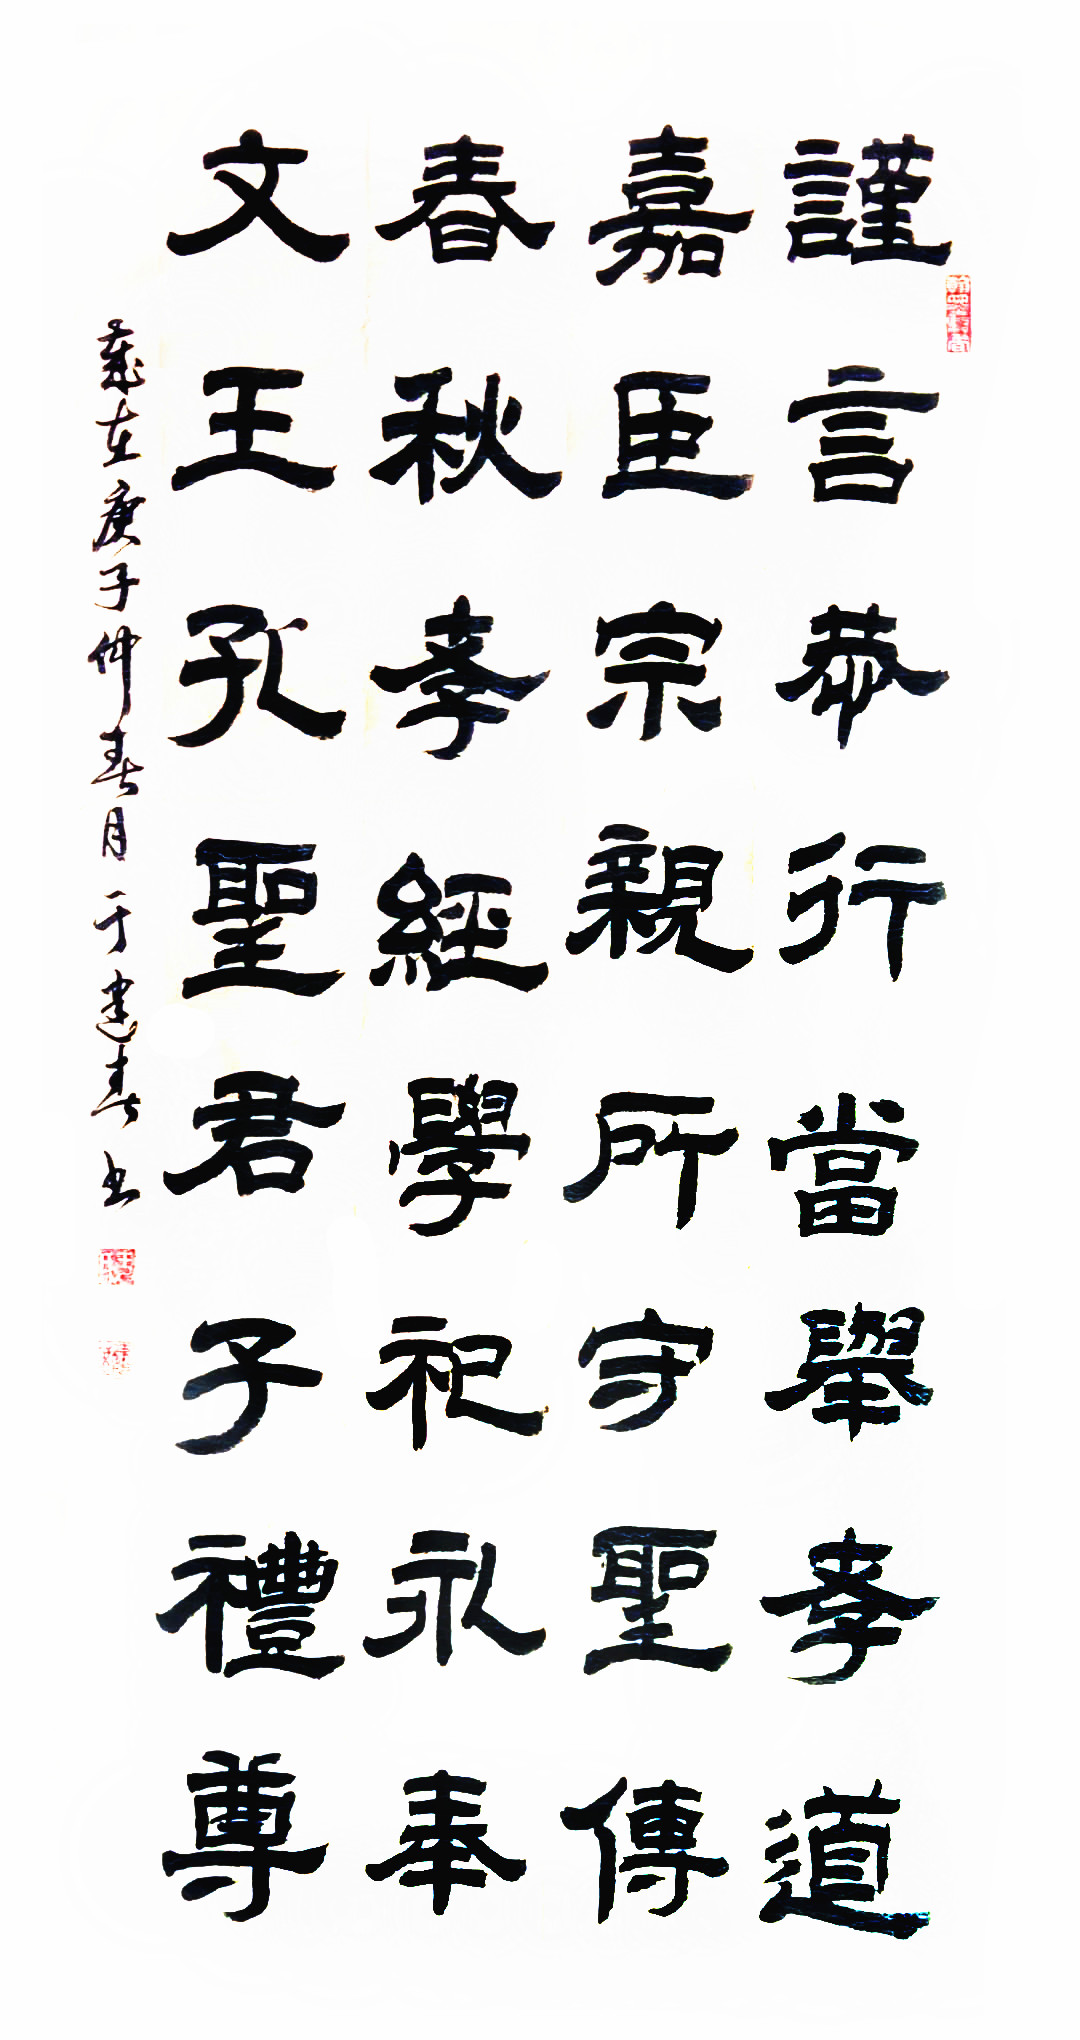 謹言恭行當舉孝道
嘉臣宗親所守聖傳
春秋孝經學祀永奉
文王孔聖君子禮尊
歲在庚子仲春月于建春书